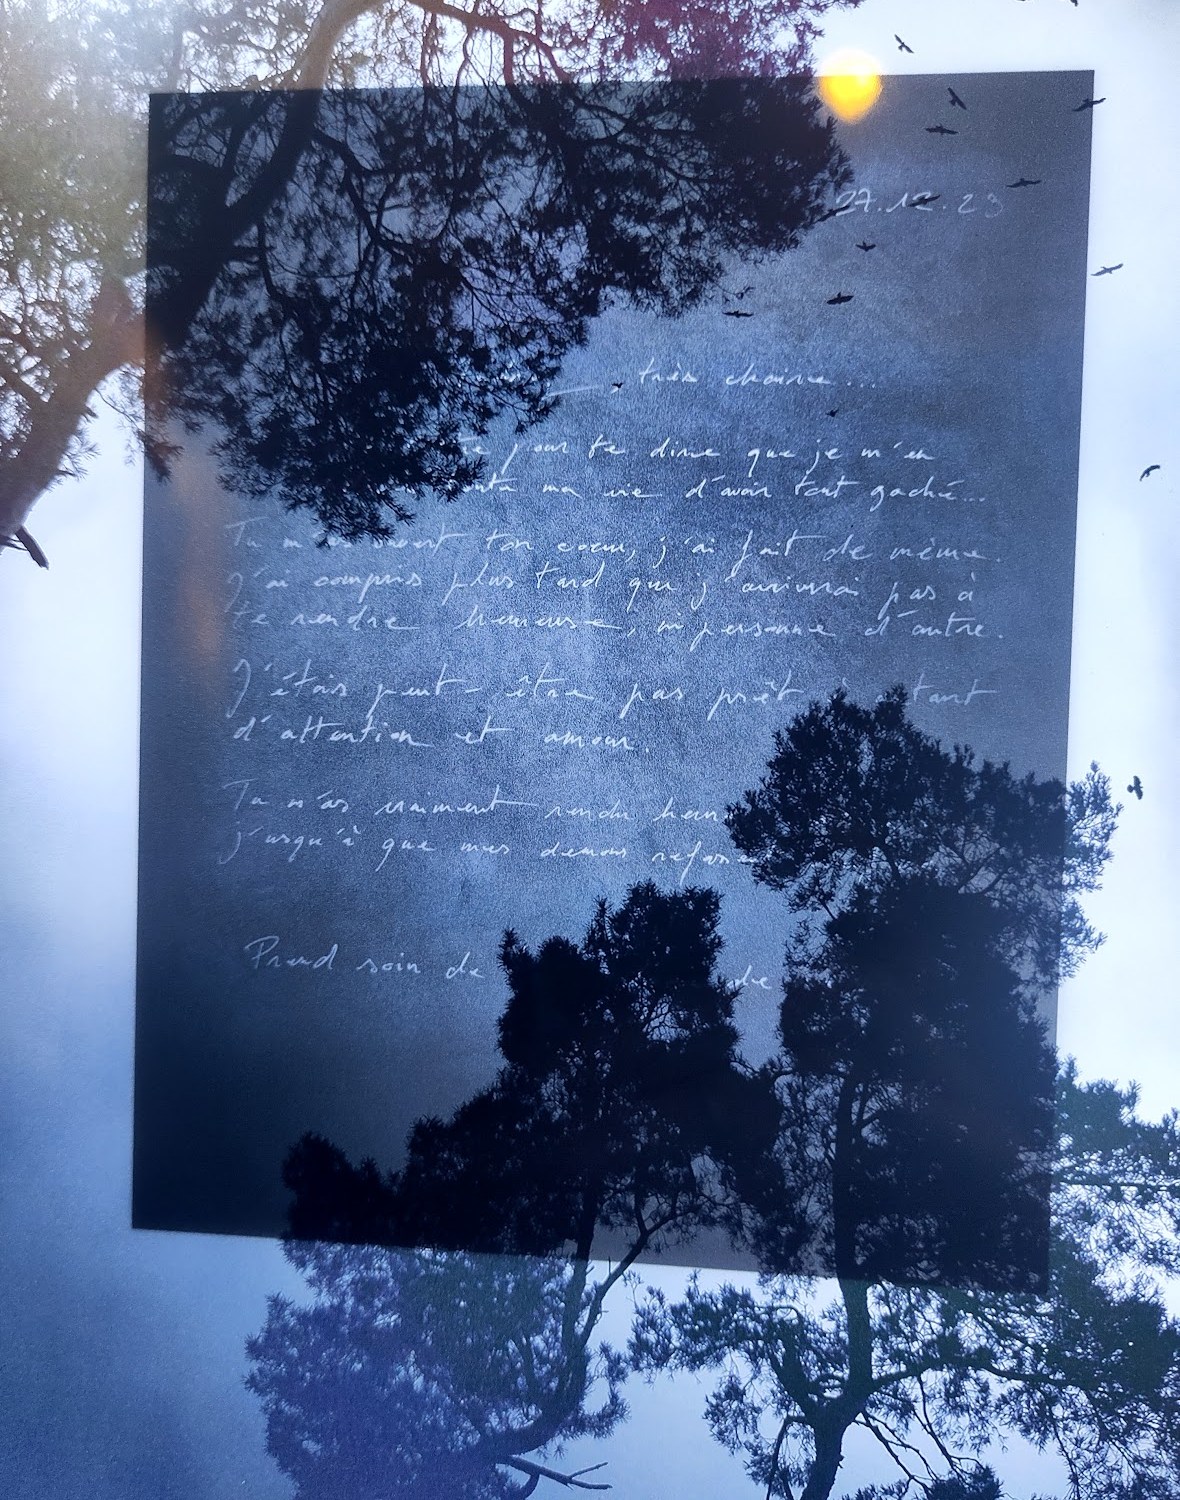 27.12.23
très chaire...
pour te dire que je m'en
ma vie d'avoir tout gaché...
Tu m'as ouvert ton coeur, j'ai fait de même.
J'ai compris plus tard que j'arriverai pas à
te rendre heureuse, ni personne d'autre.
J'étais peut-être pas prêt à autant
d'attention et amour.
Tu m'as vraiment rendu
j'usqu'à que mes démons refasse
Prend soin de de